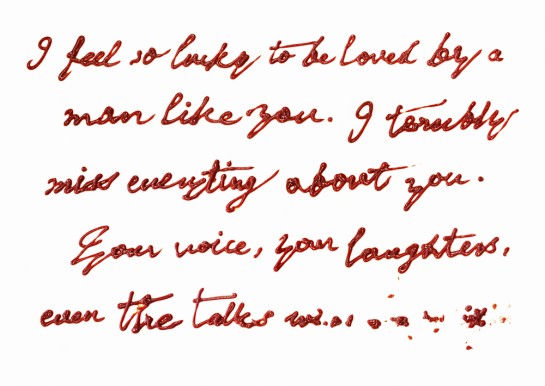 I feel so lucky to be loved by a
man like you. I terribly
miss everyting about you.
Your voice, your laughters,
even the talks